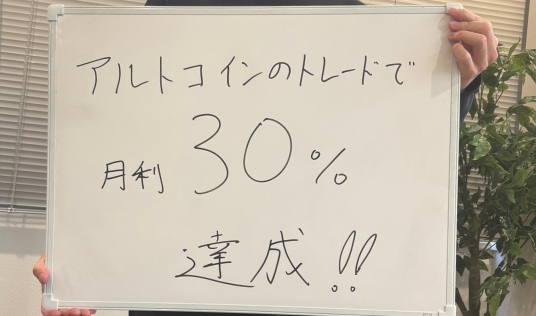 アルトコインのトレードで
月利 30%
達成!!